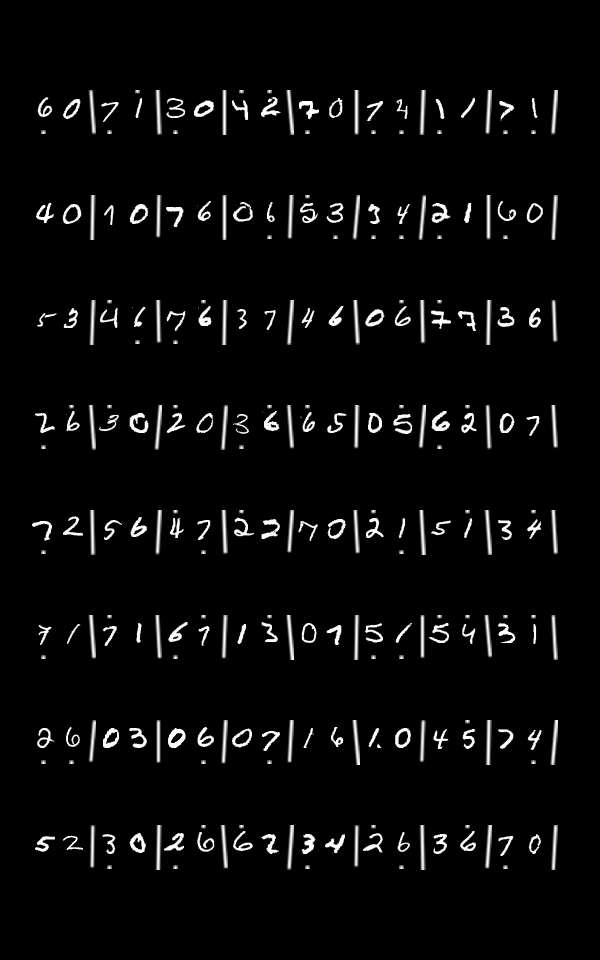 6 0 | 7 1 | 3 0 | 4 2 | 7 0 | 7 4 | 1 1 | 7 1 |
4 0 | 1 0 | 7 6 | 0 6 | 5 3 | 3 4 | 2 1 | 6 0 |
5 3 | 4 6 | 7 6 | 3 7 | 4 6 | 0 6 | 7 7 | 3 6 |
2 6 | 3 0 | 2 0 | 3 6 | 6 5 | 0 5 | 6 2 | 0 7 |
7 2 | 5 6 | 4 7 | 2 2 | 7 0 | 2 1 | 5 1 | 3 4 |
7 1 | 7 1 | 6 7 | 1 3 | 0 7 | 5 1 | 5 4 | 3 1 |
2 6 | 0 3 | 0 6 | 0 7 | 1 6 | 1 0 | 4 5 | 7 4 |
5 2 | 3 0 | 2 6 | 6 2 | 3 4 | 2 6 | 3 6 | 7 0 |